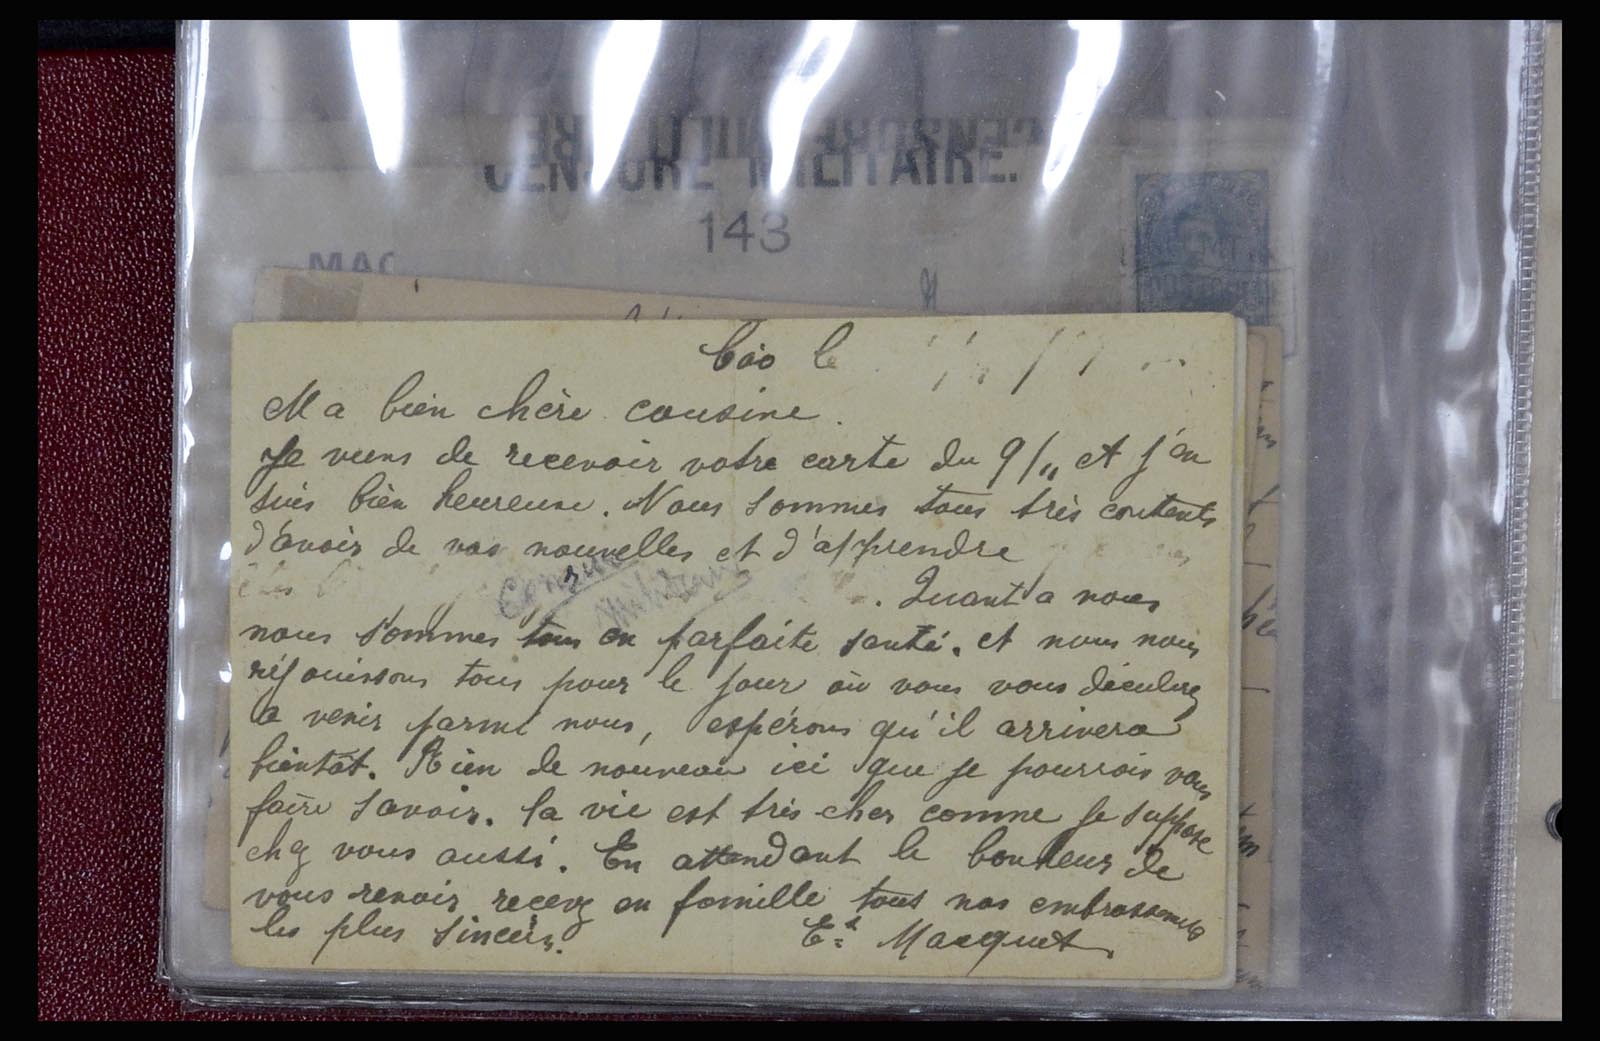 CENSURE MILITAIRE
CENSURE MILITAIRE.
143
MAG
le
Ma bien chère cousine.
Je viens de recevoir votre carte du 9/11 et j'en
suis bien heureuse. Nous sommes tous très contents
d'avoir de vos nouvelles et d'apprendre
Censure
militaire
. Quant a nous
nous sommes tous en parfaite santé. et nous nous
réjouissons tous pour le jour où vous vous
a venir parmi nous, espérons qu'il arrivera
bientôt. Rien de nouveau ici que je pourrais vous
faire savoir. la vie est très cher comme je suppose
chez vous aussi. En attendant le bonheur de
vous revoir recevez en famille tous nos embrassements
les plus sincèrs.
Macquet